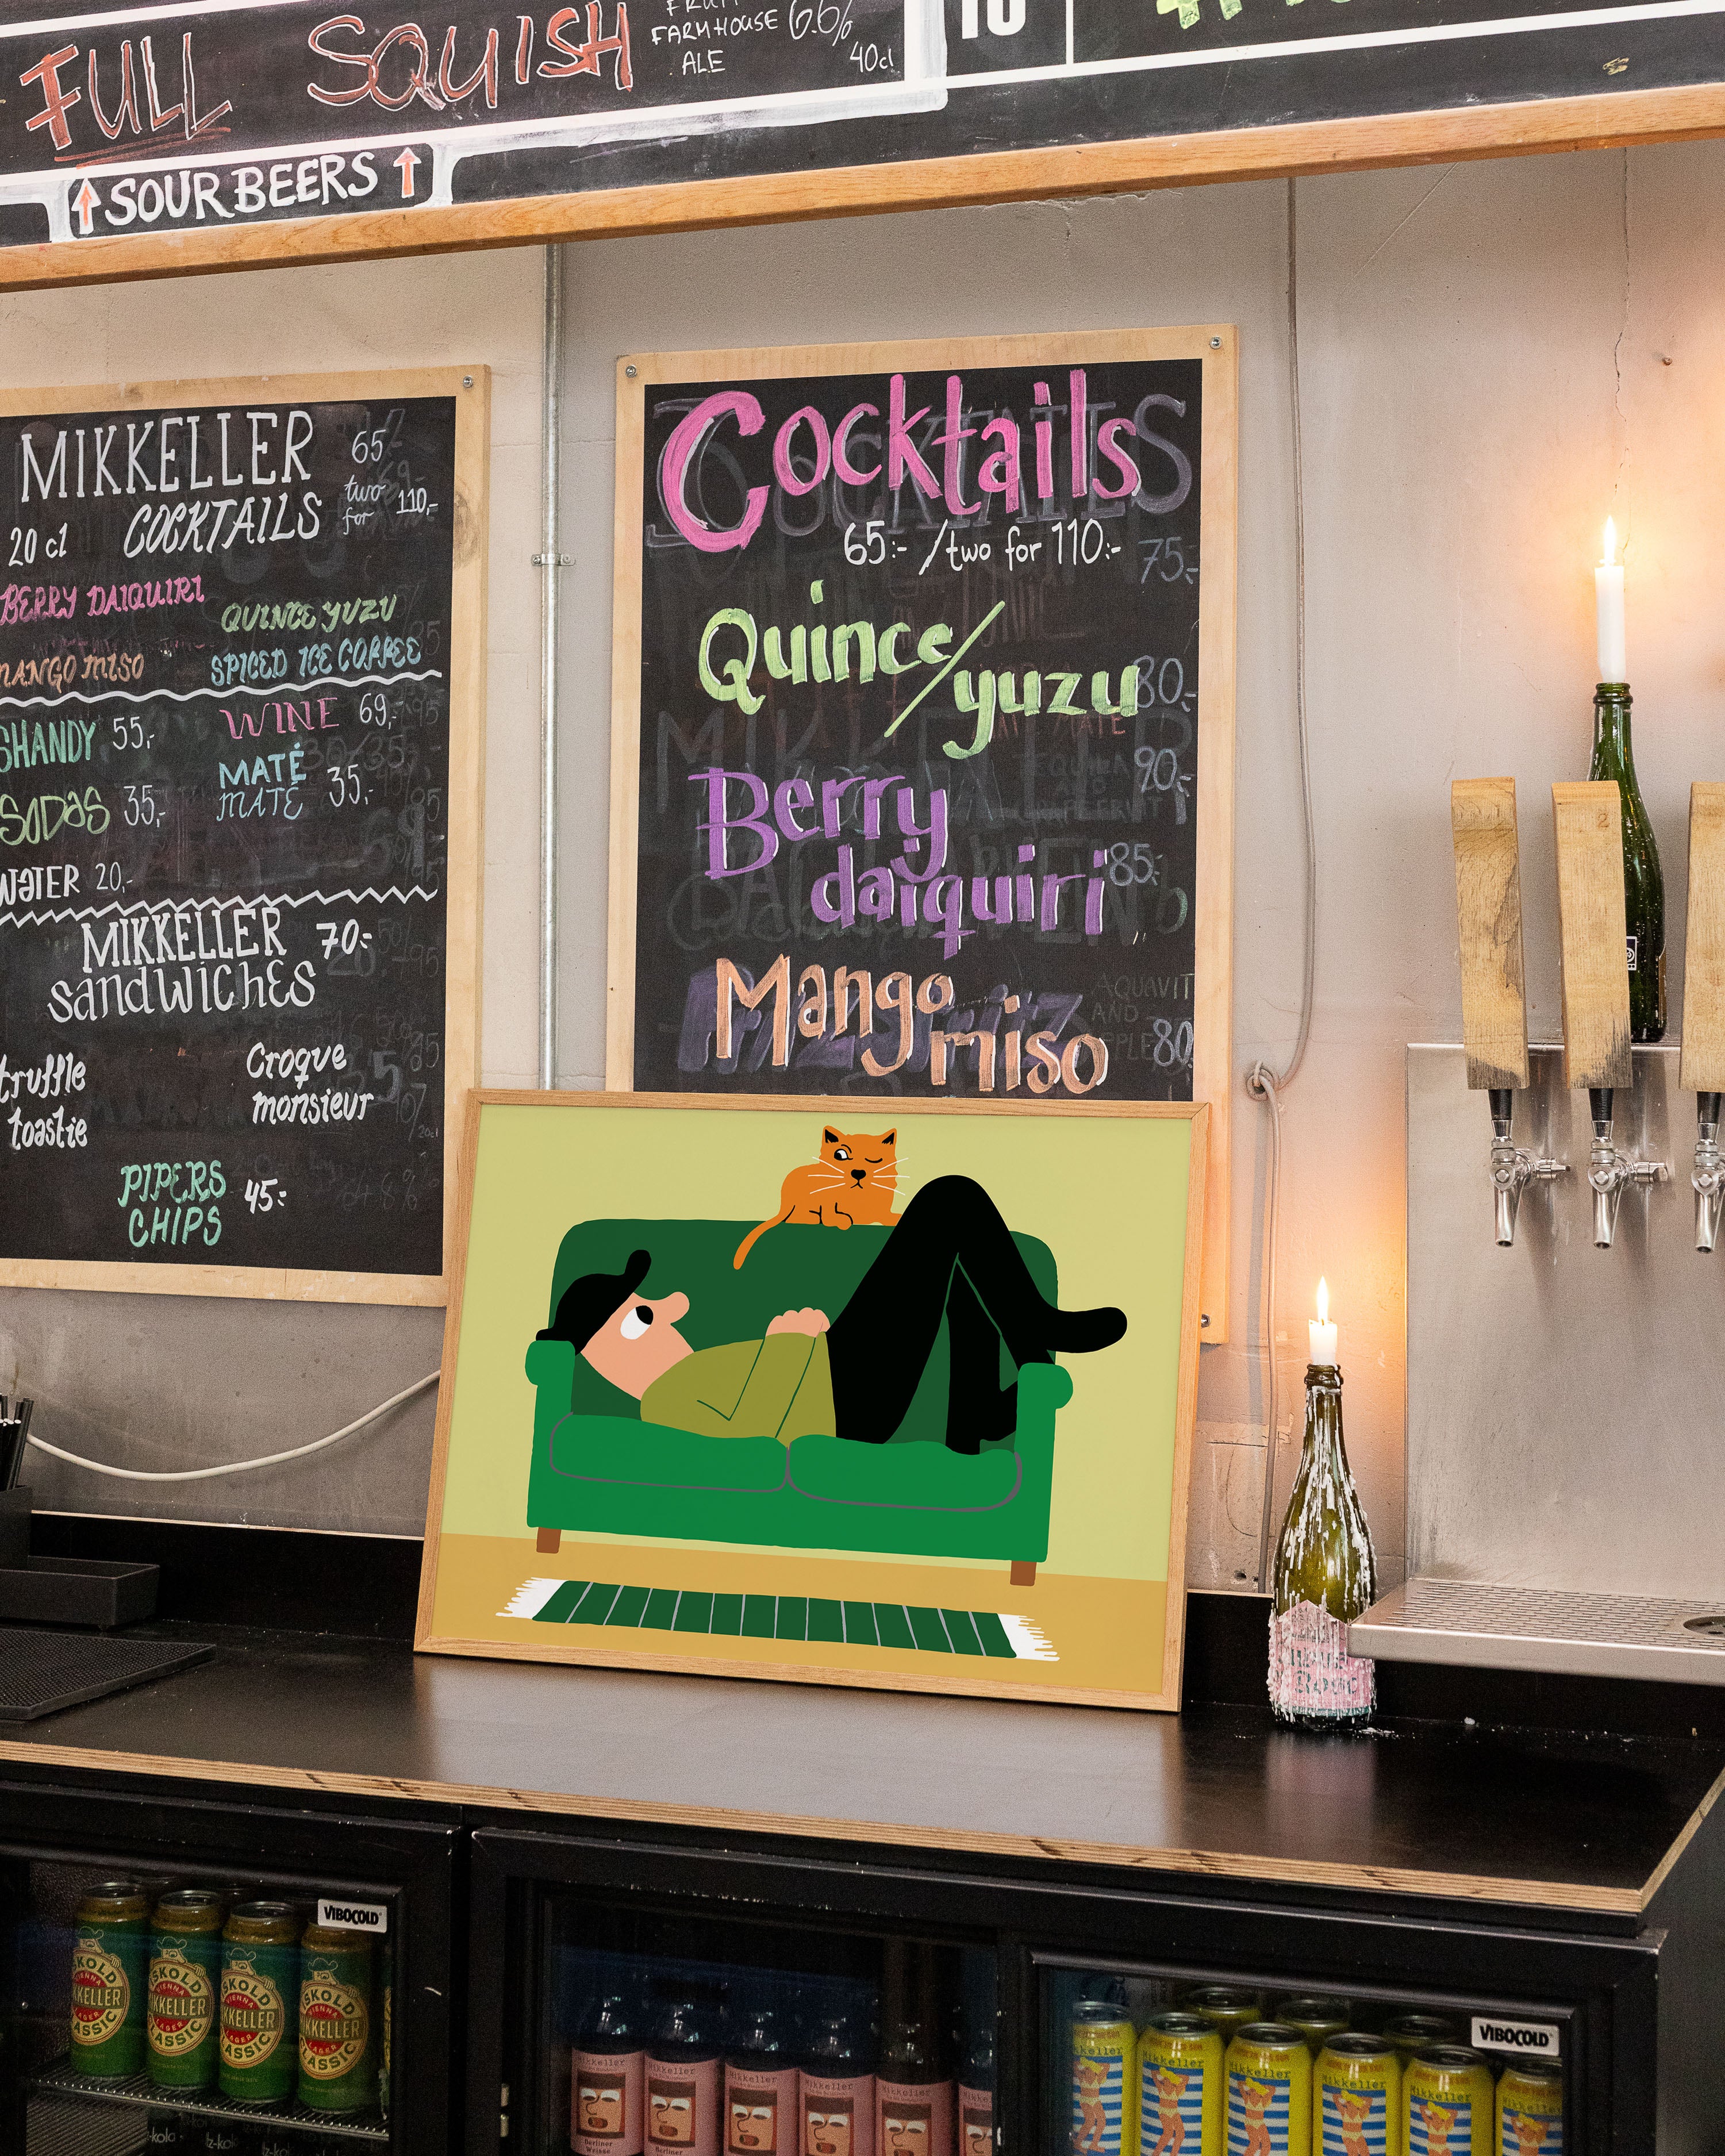 FULL SQUISH
FARMHOUSE
ALE
6.6%
40cl
10
↑ SOUR BEERS ↑
MIKKELLER
COCKTAILS
20 cl
65
two
for
110,-
BERRY DAIQUIRI
QUINCE YUZU
MANGO MISO
SPICED ICE COFFEE
SHANDY 55,-
WINE 69,-
SODAS 35,-
MATÉ
MATÉ
35,-
WATER 20,-
MIKKELLER 70:-
SANDWICHES
truffle
toastie
Croque
monsieur
PIPERS
CHIPS
45:-
Cocktails
65:- / two for 110:-
75:-
Quince/
yuzu
80,-
90,-
Berry
daiquiri
85:-
Mango
miso
AQUAVIT
AND
80
2
VIBOCOLD
VIBOCOLD
Mikkeller
Mikkeller
Mikkeller
Mikkeller
Mikkeller
Berliner
Weisse
Berliner
Mikkeller
Mikkeller
Mikkeller
Mikkeller